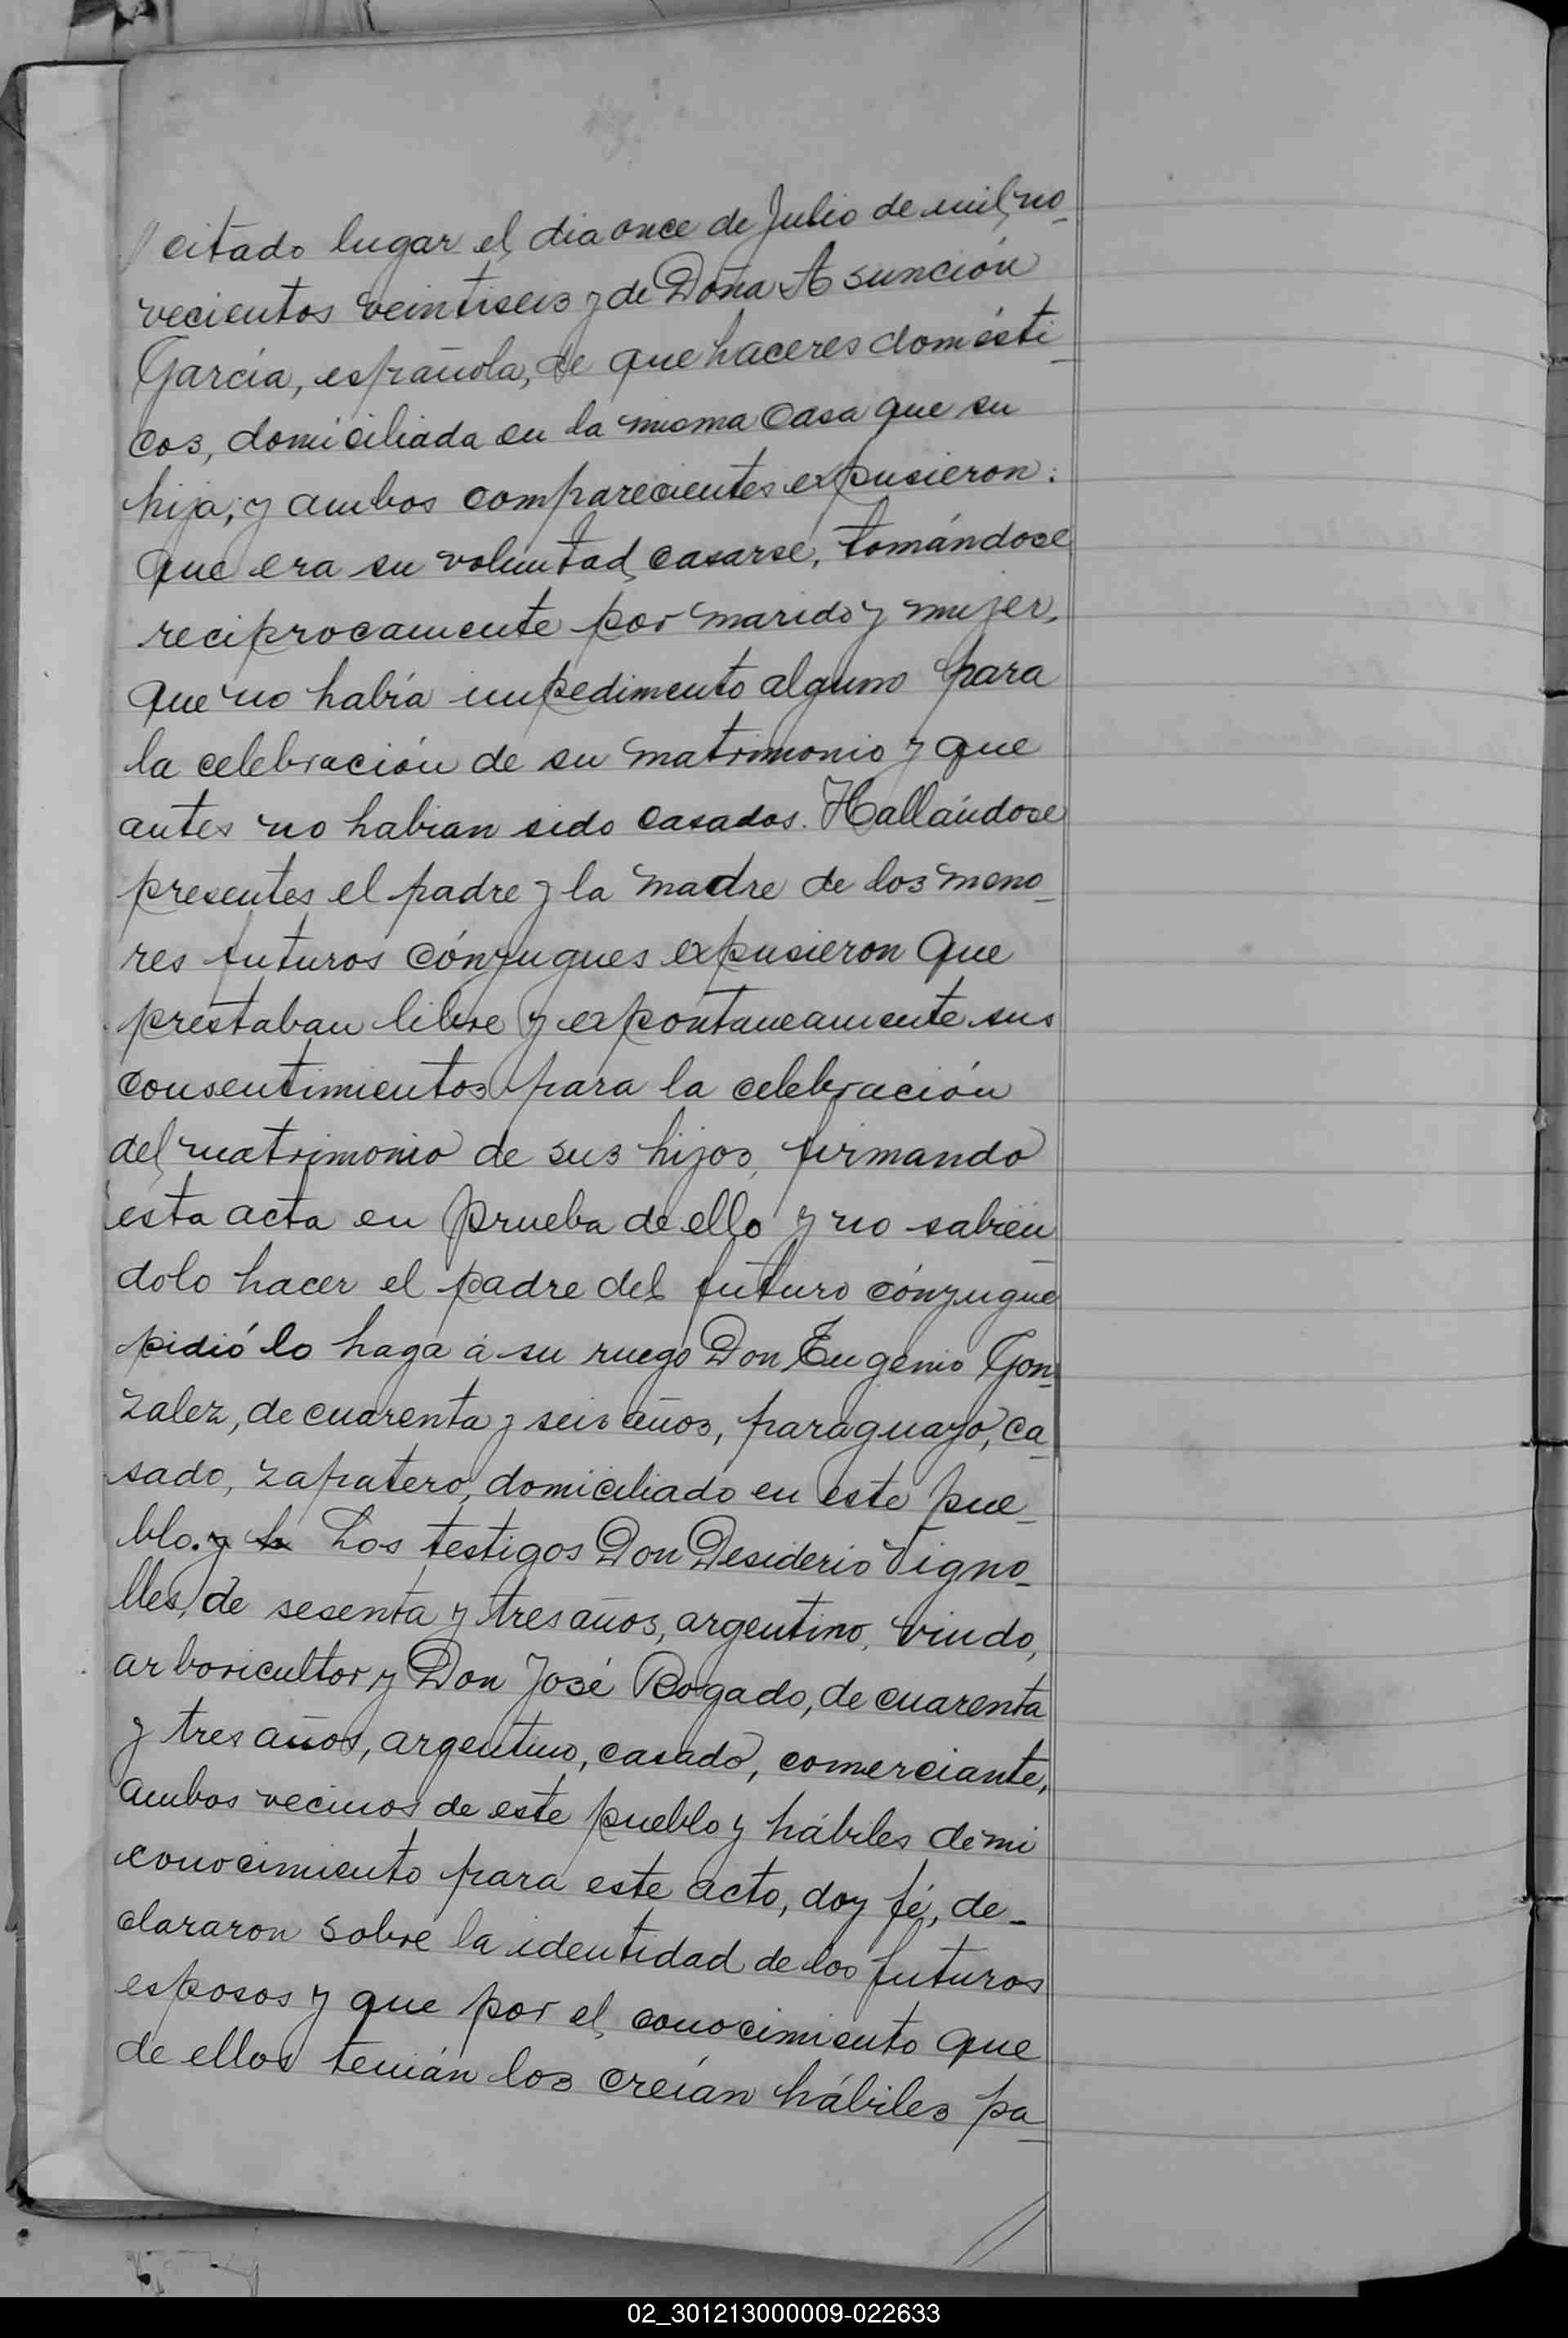 citado lugar el dia once de Julio de mil no_
vecientos veintiseis y de Doña Asunción
García, española, de que haceres domésti_
cos, domiciliada en la misma casa que su
hija; y ambos comparecientes expusieron:
que era su voluntad casarse, tomándose
reciprocamente por marido y mujer,
que no había impedimento alguno para
la celebración de su matrimonio y que
antes no habian sido casados. Hallándose
presentes el padre y la madre de los meno_
res futuros cónyugues expusieron que
prestaban libre y expontaneamente sus
consentimientos para la celebración
del matrimonio de sus hijos, firmando
esta acta en prueba de ello y no sabién_
dolo hacer el padre del futuro cónyugue
pidió lo haga á su ruego Don Eugenio Gon_
zalez, de cuarenta y seis años, paraguayo, ca_
sado, zapatero, domiciliado en este pue_
blo. y Los testigos Don Desiderio Vigno_
lles, de sesenta y tres años, argentino, viudo,
arboricultor y Don José Bogado, de cuarenta
y tres años, argentino, casado, comerciante,
ambos vecinos de este pueblo y hábiles de mi
conocimiento para este acto, doy fé, de_
clararon sobre la identidad de los futuros
esposos y que por el conocimiento que
de ellos tenián los creían hábiles pa_
02_301213000009-022633